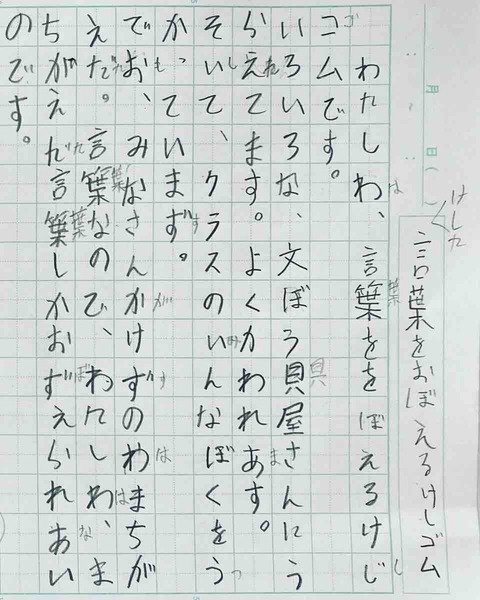 月 日( )
けした
言葉をおぼえるけしゴム
わたしわ、言葉ををぼえるけじ
コムです。
いろいろな、文ぼう貝屋さんにう
らえてます。よくかわれあす。
そいて、クラスのいんなぼくをう
かっていまず。
でお、みなさんかけずのわまちが
えだ。言葉なのび、わたしわ、ま
ちがえだ言葉しかおずえられあい
のです。